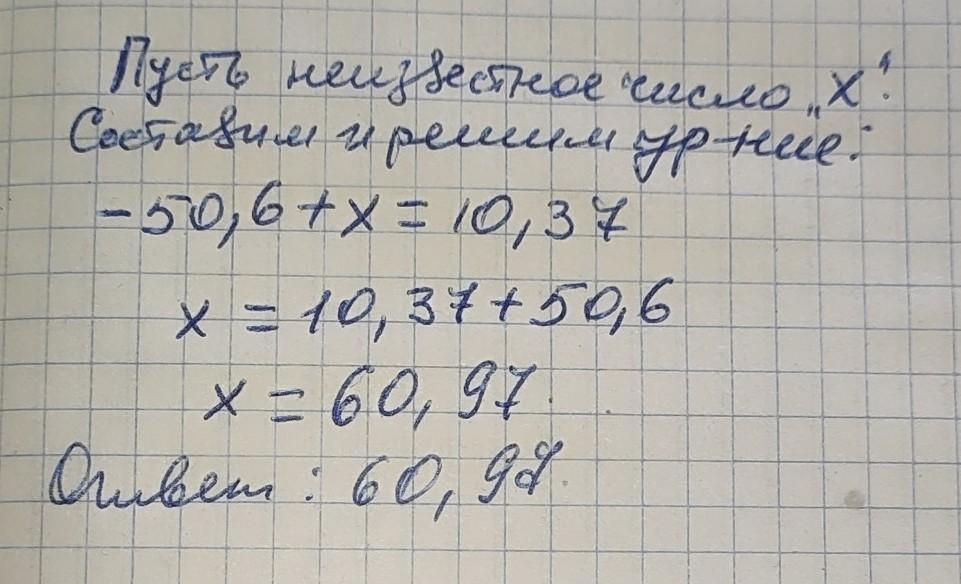 Пусть неизвестное число „х“.
Составим и решим ур-ние:
-50,6+х=10,37
х = 10,37+50,6
х = 60,97
Ответ: 60,97